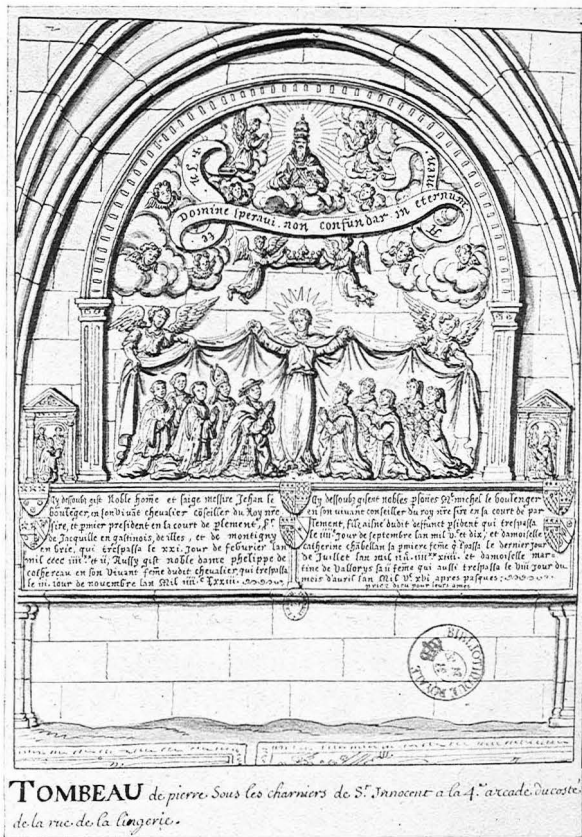 Domine speravi. non confundar in eternum.
Cy dessoubz gist Noble home et saige messire Jehan le
bouleger, en son vivāt chevalier cōseiller du Roy nre
sire, et pmier president en la court de plement, Sr.
de Jacquille en gastinois, de illes, et de montigny
en brie, qui trespassa le xxi. Jour de febvrier lan
mil cccc iiiixx et ii, Aussy gist noble dame phelippe de
cothereau en son Vivant feme dudit chevalier, qui trespassa
le iii. iour de novembre lan Mil iiii.c Lxxiii.
Cy dessoubz gisent nobles psones Mr. michel le boulenger
en son vivant conseiller du roy nre sire en sa court de par
lement, filz aisne dudit deffunct psident qui trespassa
le iiiie Jour de septembre lan mil vc. et dix; et damoiselle
catherine chabellan sa pmiere feme q̄ tspassa le dernier jour
de Juillet lan mil iiii. iiiixx xiiii. et damoiselle mar
tine de Vallorys sa ii feme qui aussi trespassa le viii jour du
mois d'avril lan Mil Vc. xvi, apres pasques:
priez dieu pour leurs ames
BIBLIOTHEQUE ROYALE
TOMBEAU de pierre Sous les charniers de St. Innocent a la 4e. arcade du costé
de la rue de la lingerie.